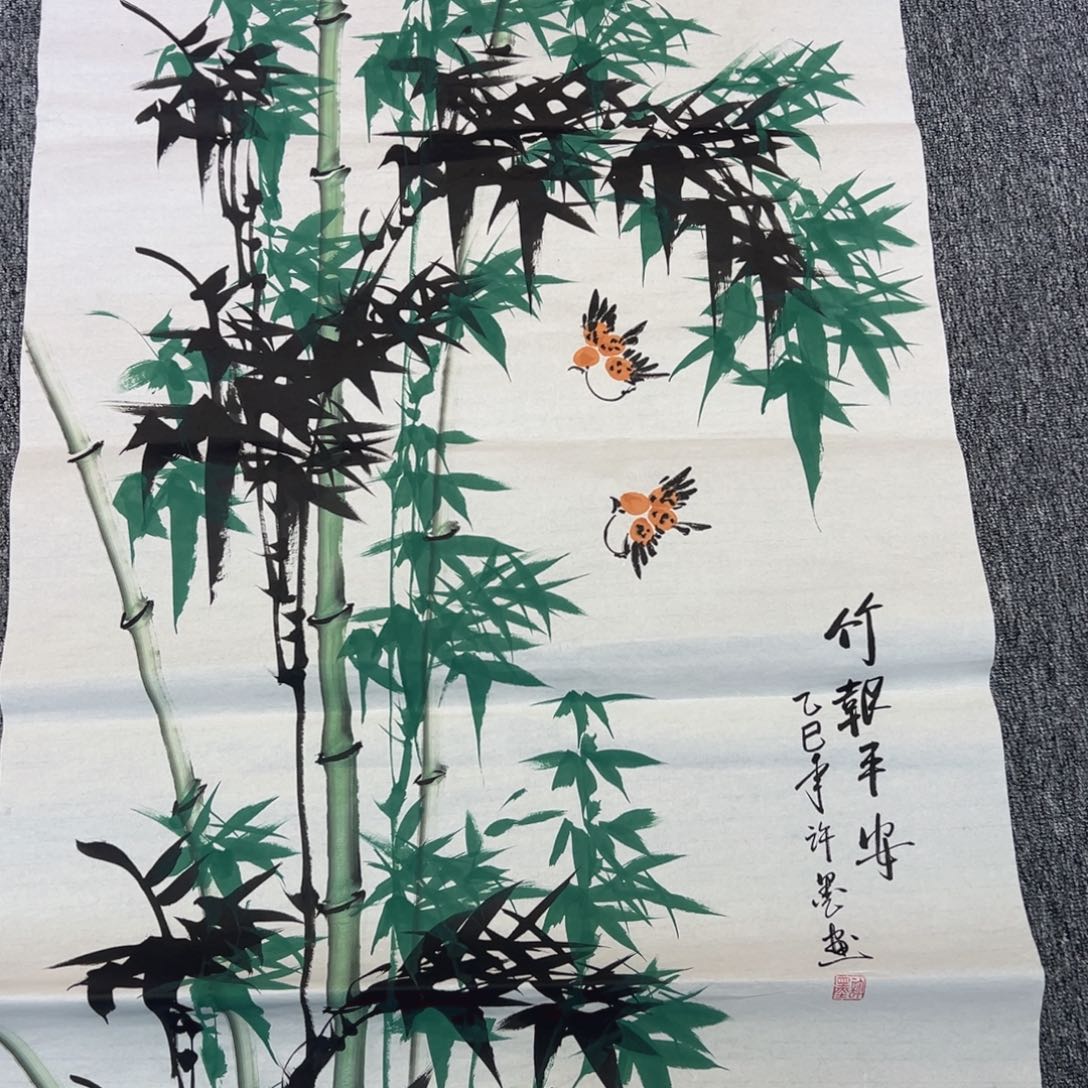 竹報平安
乙巳年许墨画